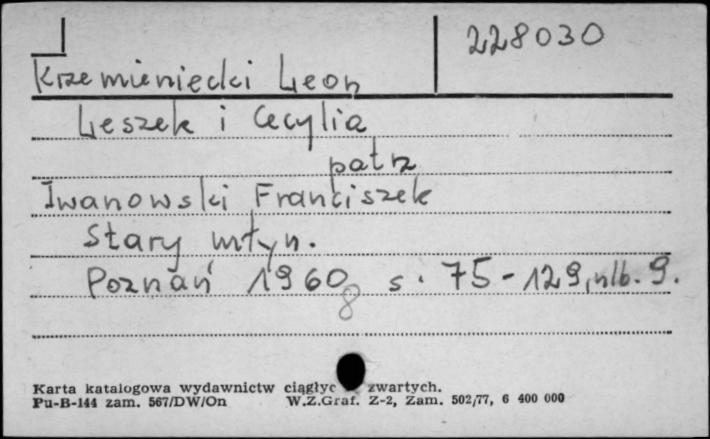 228030
Krzemieniecki Leon
Leszek i Cecylia
patrz
Iwanowski Franciszek
Stary młyn.
Poznań 1960 s. 75-129, nlb. 9.
8
Karta katalogowa wydawnictw ciągłyc zwartych.
Pu-B-144 zam. 567/DW/On W.Z.Graf. Z-2, Zam. 502/77, 6 400 000